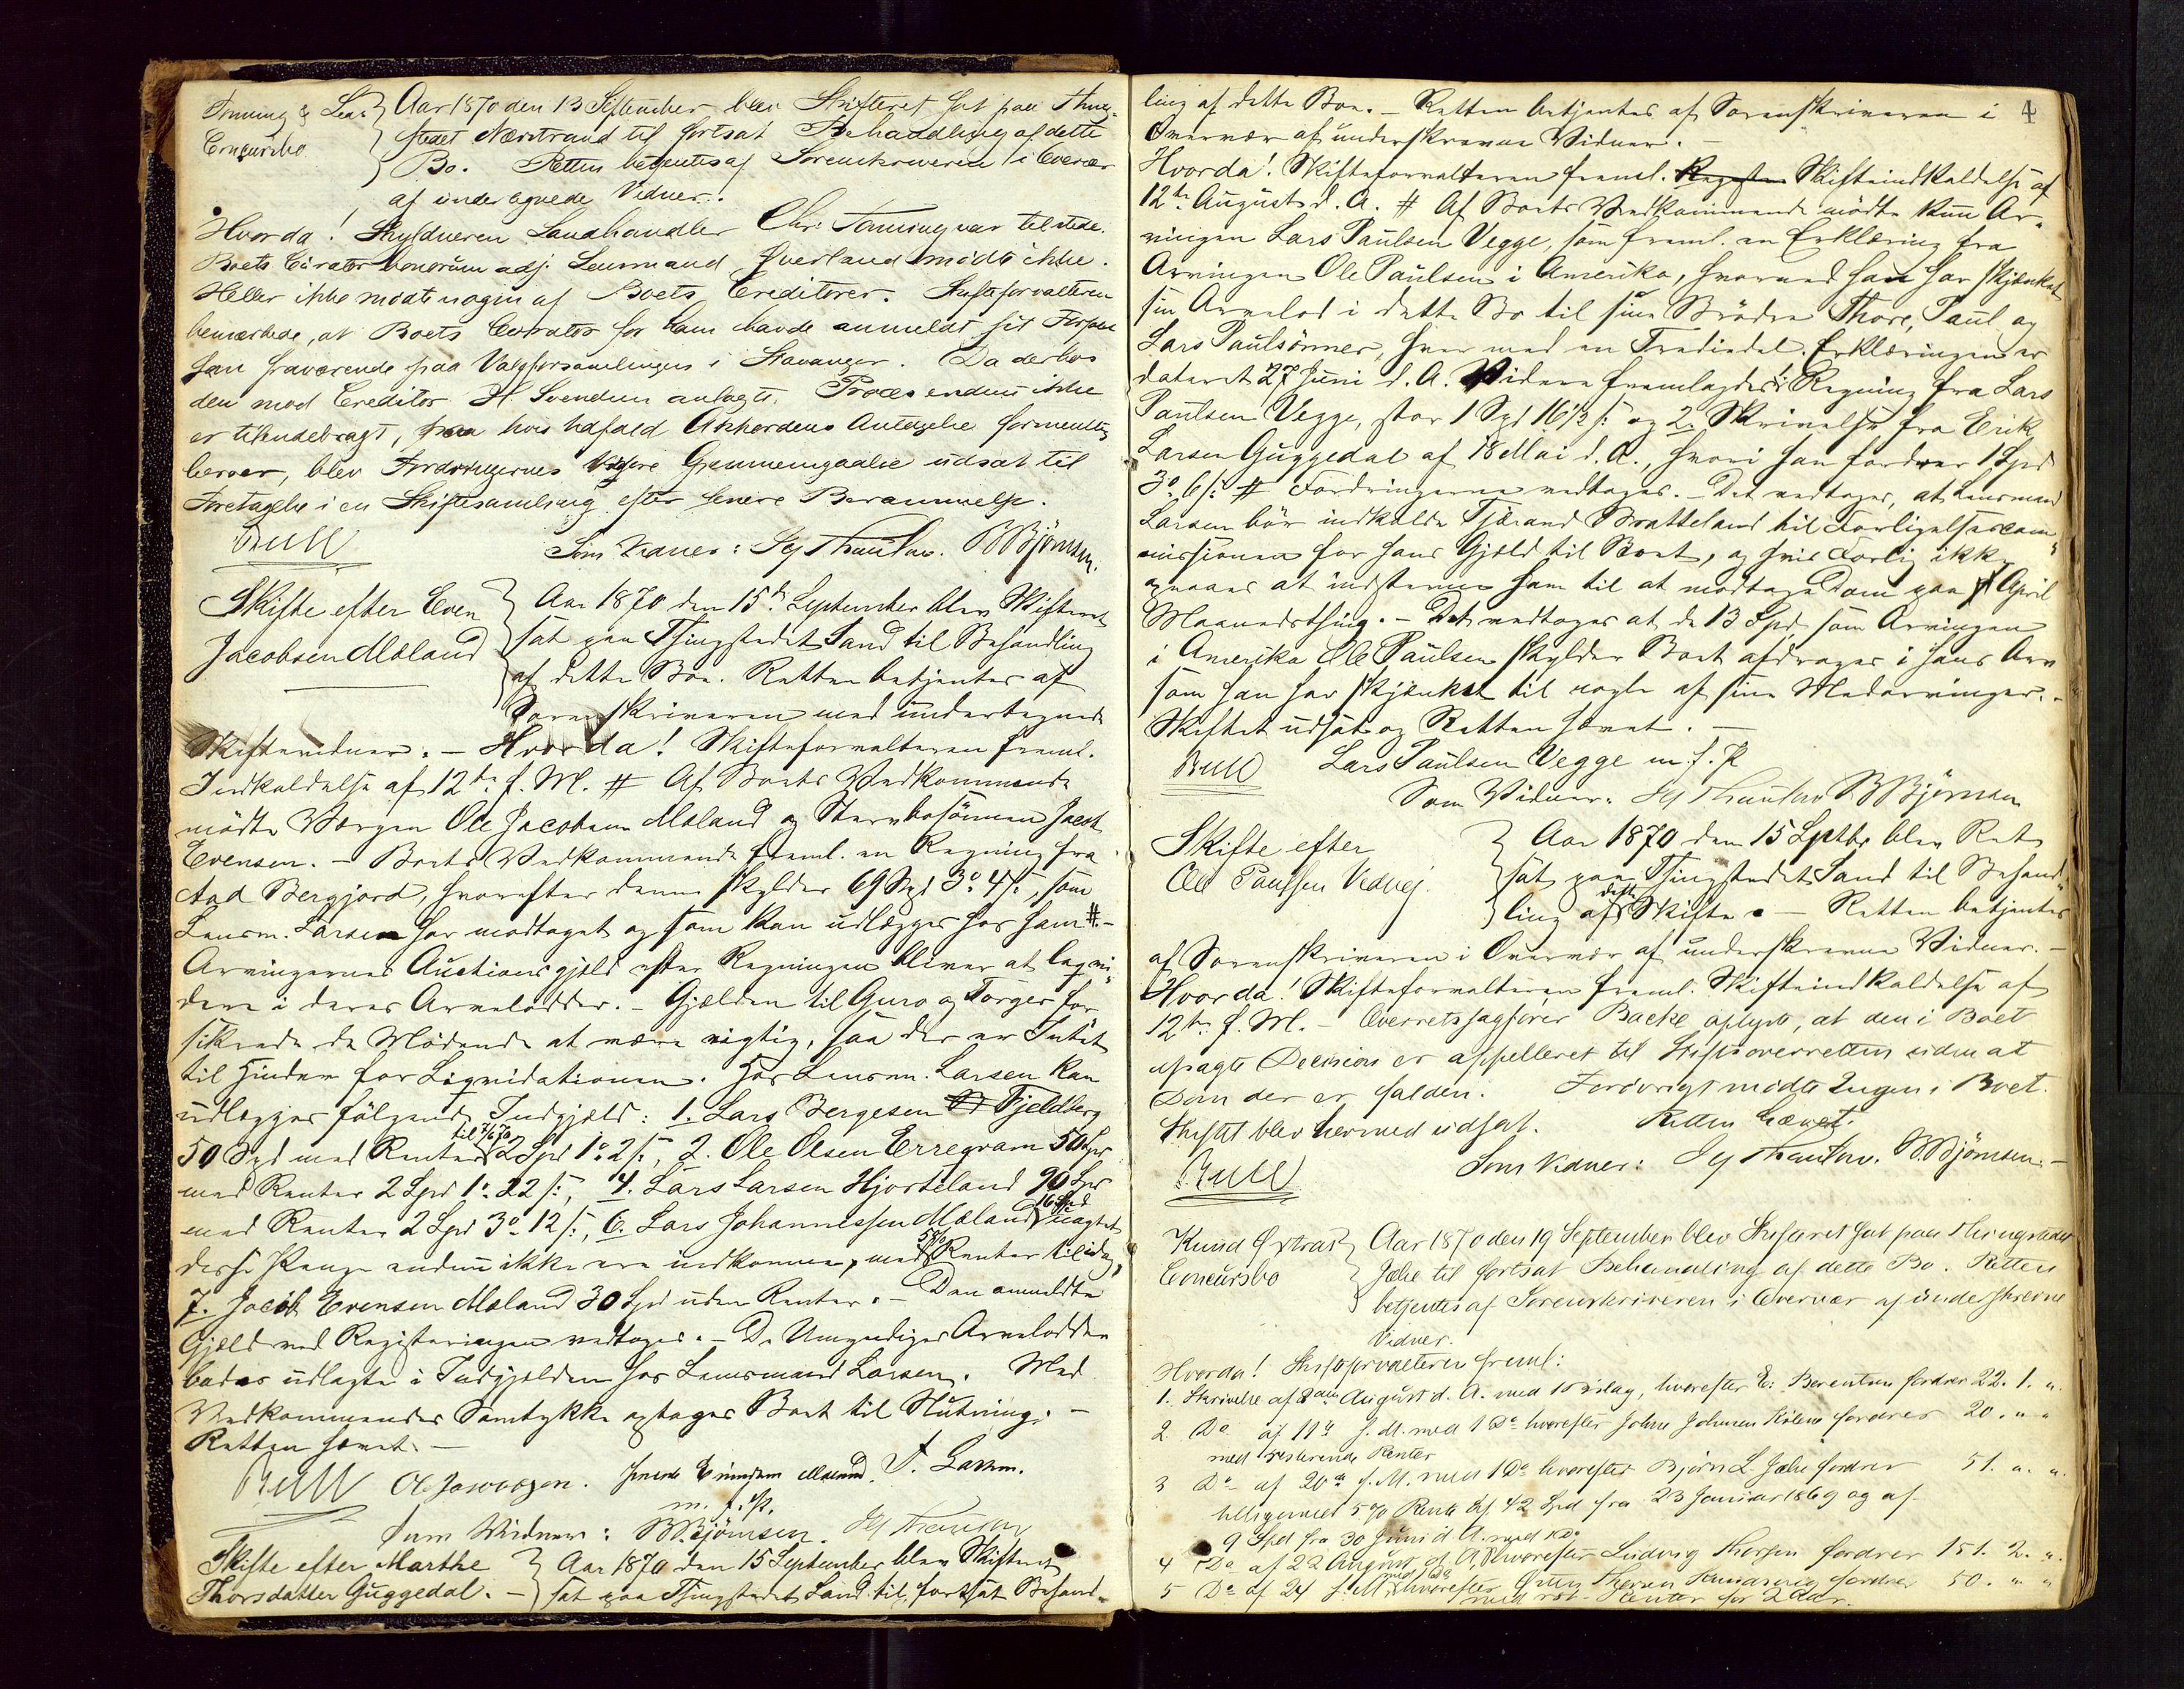 Aar 1870 den 13 September blev Skifteret sat paa Thing-
Concursbo stedet Nærstrand til fortsat Behandling af dette
Bo. Retten betjentes af Sorenskriveren i Overvær
af undertegnede Vidner.
Hvorda! Skyldneren Landhandler Chr. Tonning var tilstede.
Boets Curator bonorum adj. Lensmand Qverland mødte ikke.
Heller ikke mødte nogen af Boets Creditorer. Skifteforvalteren
bemærkede, at Boets Curator for ham havde anmeldt sit Forfald
som fraværende paa Valgforsamlingen i Stavanger. Da derhos
den mod Creditor H Svendsen anlagte Proces endnu ikke
er tilendebragt, paa hvis Udfald Akkordens Antagelse formentlig
beroer, blev Fordringernes videre Gjennemgaaelse udsat til
Foretagelse i en Skiftesamling efter senere Berammelse.
Bull Som Vidner: B Bjørnsen.
Skifte efter Even Aar 1870 den 15de September blev Skifteret
Jacobsen Mæland sat paa Thingstedet Sand til Behandling
af dette Boe. Retten betjentes af
Sorenskriveren med undertegnede
Skiftevidner. — Hvorda! Skifteforvalteren freml.
Indkaldelse af 12te f. M. # Af Boets Vedkommende
mødte Værgen Ole Jacobsen Mæland og Stervbosønnen Jacob
Evensen. — Boets Vedkommende freml. en Regning fra
Aad Bergjord, hvorefter denne skylder 69 Spd 3o 4 s, som
Lensm. Larsen har modtaget og som kan udlægges hos ham #. —
Arvingernes Auctionsgjæld efter Regningen bliver at liqvi-
dere i deres Arvelodder. — Gjælden til Guro og Torger for-
sikrede de Mødende at være rigtig, saa der er Intet
til Hinder for Liqvidationen. Hos Lensm. Larsen kan
udlægges følgende Indgjæld: 1. Lars Bergesen Fjeldberg
50 Spd med Renter til 7/6 70 2 Spd 1o 2 s, 2. Ole Olsen Erregram 50 Spd
med Renter 2 Spd 1o 22 s, 4. Lars Larsen Hjorteland 90 Spd
med Renter 2 Spd 3o 12 s, 6. Lars Johannessen Mæland 16 Spd uagtet
disse Penge endnu ikke ere indkomne, med 5% Renter til idag,
7. Jacob Evensen Mæland 30 Spd uden Renter. — Den anmeldte
Gjæld ved Registeringen vedtoges. — De Umyndiges Arvelodder
bades udlagte i Indgjælden hos Lensmand Larsen. Med
Vedkommendes Samtykke optoges Boet til Slutning. —
Retten hævet. —
Bull O Jacobsen. Jacob Evensen Mæland. T. Larsen.
m. f. P.
Som Vidner: B Bjørnsen.
Skifte efter Marthe Aar 1870 den 15 September blev Skifteret
Thorsdatter Guggedal. — sat paa Thingstedet Sand til fortsat Behand-
4
ling af dette Boe. — Retten betjentes af Sorenskriveren i
Overvær af underskrevne Vidner. —
Hvorda! Skifteforvalteren freml. Skifteindkaldelse af
12te August d. A. # Af Boets Vedkommende mødte kun Ar-
vingen Lars Paulsen Vegge, som freml. en Erklæring fra
Arvingen Ole Paulsen i Amerika, hvorved han har skjænket
sin Arvelod i dette Bo til sine Brødre Thore, Paul og
Lars Paulsønner, hver med en Trediedel. Erklæringen er
dateret 27 Juni d. A. Videre fremlagdes: 1. Regning fra Lars
Paulsen Vegge, stor 1 Spd 16 1/2 s og 2. Skrivelse fra Erik
Larsen Guggedal af 18 Mai d. A., hvori han fordrer 1 Spd
3o 6 s # Fordringerne vedtoges. — Det vedtoges, at Lensmand
Larsen bør indkalde Tjerand Bratteland til Forligelsescom-
missionen for hans Gjæld til Boet, og hvis Forlig ikke
opnaaes at indstevne ham til at modtage Dom paa April
Maanedsthing. — Det vedtoges at de 13 Spd som Arvingen
i Amerika Ole Paulsen skylder Boet afdrages i hans Arv
som han har skjænket til nogle af sine Medarvinger. —
Skiftet udsat og Retten hævet. —
Bull Lars Paulsen Vegge m. f. P
Som Vidner: B Bjørnsen
Skifte efter Aar 1870 den 15 Septbr blev Ret
Ole Paulsen sat paa Thingstedet Sand til Behand-
ling af dette Skifte. — Retten betjentes
af Sorenskriveren i Overvær af underskrevne Vidner. —
Hvorda! Skifteforvalteren freml. Skifteindkaldelse af
12te f. M. — Overretssagfører Backe oplyste, at den i Boet
afsagte Decision er appelleret til Stiftsoverretten uden at
Dom der er falden. Forøvrigt mødte Ingen i Boet.
Skiftet blev hermed udsat. Retten hævet.
Bull Som Vidner: B. Bjørnsen. —
Knud Østraat Aar 1870 den 19 September blev Skifteret sat paa Thingstedet
Concursbo Jælse til fortsat Behandling af dette Bo. Retten
betjentes af Sorenskriveren i Overvær af underskrevne
Vidner.
Hvorda! Skifteforvalteren freml:
1. Skrivelse af 8de August d. A. med 1 Bilag, hvorefter E. Berentsen fordrer 22. 1. "
2. Do af 11te f. M. med 1 Do hvorefter Johne Johnsen fordrer 20. " "
med resterende Renter
3 Do af 20de f. M. med 1 Do hvorefter Bjørn L. Jælse fordrer 51. " "
tilligemed 5% Rente af 42 Spd fra 23 Januar 1869 og af
9 Spd fra 30 Juni d. A.
4 Do af 22 August d. A. med 1 Do hvorefter Ludvig Thorsen fordrer 151. 2. "
5 Do af 24 f. M. med 1 Do hvorefter fordrer 50. " "
med rest. Renter for 2 Aar.